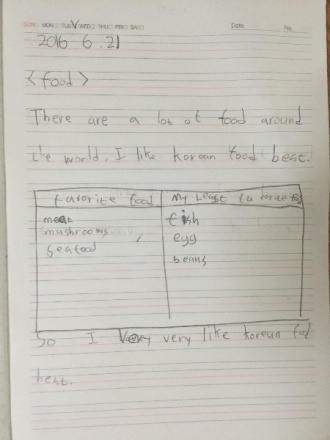 SUN□ MON□ TUE☑ WED□ THU□ FRI□ SAT□ Date. No.
2016 6. 21
<food>
There are a lot of food around
the world. I like korean food best.
favorite food My Least favorites
meat fish
mushrooms egg
seafood beans
So I very very like korean food
best.